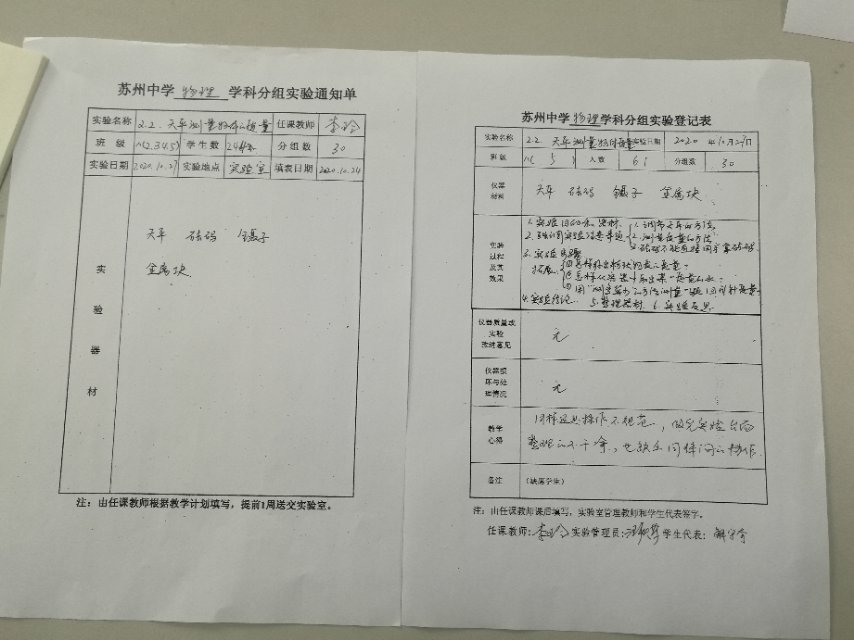 苏州中学 物理 学科分组实验通知单
实验名称 2.2. 天平测量物体的质量 任课教师 李玲
班 级 八(2.3.4.5) 学生数 244 分组数 30
实验日期 2020.10.27 实验地点 实验室 填表日期 2020.10.24
实验器材
天平 砝码 镊子
金属块
注：由任课教师根据教学计划填写，提前1周送交实验室。
苏州中学 物理 学科分组实验登记表
实验名称 2.2 天平测量物体质量 实验日期 2020 年10月27日
班级 八( 5 ) 人数 61 分组数 30
仪器材料 天平 砝码 镊子 金属块
实验过程及其效果
1. 调节天平的方法
2. 测量质量的方法
3. 实验步骤
拓展
4. 实验结论 5. 整理器材 6. 实验反思
仪器质量或实验改进意见 无
仪器损坏与处理情况 无
教学心得 同样是操作不规范，做完实验台面
整理的不干净，也缺乏同伴间的协作.
备注 （缺席学生）
注：由任课教师课后填写，实验室管理教师和学生代表签字。
任课教师：李玲 实验管理员： 学生代表：